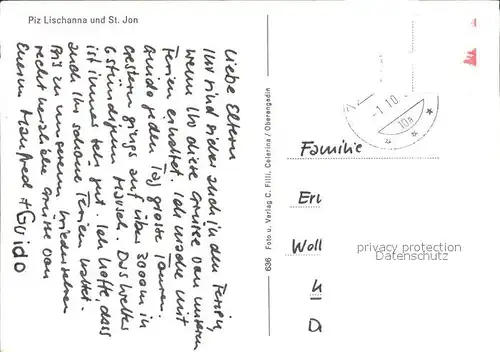 Piz Lischanna und St. Jon
Liebe Eltern
Ihr sind sicher auch in den Ferien,
wenn Ihr diese Grüsse von unseren
Ferien erhaltet. Ich mache mit
Guido jeden Tag grosse Touren.
Gestern gings auf über 3000 m in
6 stündigem Marsch. Das Wetter
ist immer sehr gut. Ich hoffe, dass
auch Ihr schöne Ferien hattet.
Bis zu unserem Wiedersehen
recht herzliche Grüsse von
Eurem Manfred + Guido
636 Foto u. Verlag C. Filli, Celerina / Oberengadin
-1.10
10a
Familie
Er
Woll
privacy protection
Datenschutz